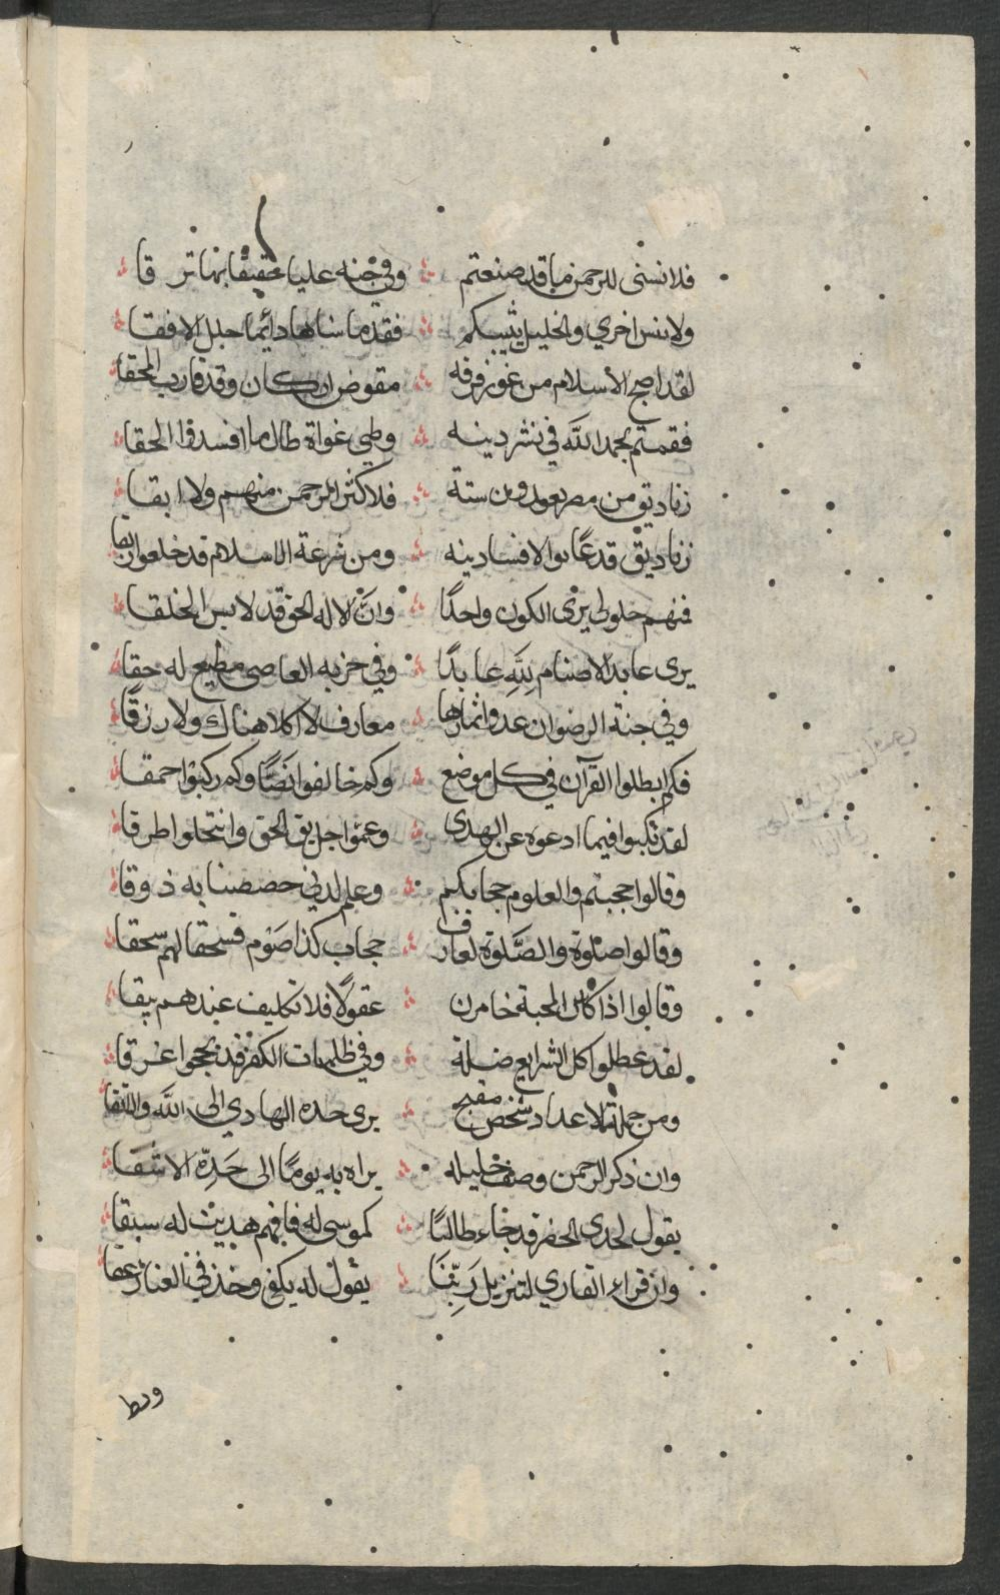 فلا نسنى للرحمن ما قد صنعتم وفي جنه عليا حقيقا بها ترقا
ولا نس اخري والخليل يثيبكم فقد ما سناها دائما جلل الافقا
لقد اصبح الاسلام من غوز فرقه مقوض اركان وقد قارب المحقا
فقمتم بحمد الله في نشر دينه وطي غواة طال ما افسدوا الحقا
زناديق من مصر ستة فلا كثر الرحمن منهم ولا ابقا
زناديق قد دينه ومن شرعة الاسلام قد خلعوا
فمنهم حلولي يرى الكون واحدًا وان الاله الحق قد لابس الخلقا
يرى عابد الاصنام لله عابدًا وفي حزبه العاصي مطيع له حقا
وفي جنة الرضوان عدوا ثمارها معارف لا اكلا هناك ولا رزقًا
فكم ابطلوا القرآن في كل موضع وكم خالفوا نصًا وكم ركبوا حمقا
لقد نكبوا فيما ادعوه عن الهدى وعموا طريق الحق وانتحلوا طرقا
وقالوا حجبتم والعلوم حجابكم وعلم لدني خصصنا به ذوقا
وقالوا صلوة والصلوة لعارف حجاب كذا صوم فسحقا لهم سحقا
وقالوا اذا كاس المحبة خامرن عقولًا فلا تكليف عندهم يبقا
لقد عطلوا كل الشرايع ضلة وفي ظلمات الكفر قد لججوا غرقا
ومن جملة الاعداد شخص مقبح يرى جده الهادي الى الله والتقا
وان ذكر الرحمن وصف خليله يراه به يومًا الى جده الاشقا
يقول لجدي الخضر قد جاء طالبًا كموسى له فافهم هديت له سبقا
وان قراء القاري لتنزيل ربنا يقول له يكفي وخذ في الغنا
ورط